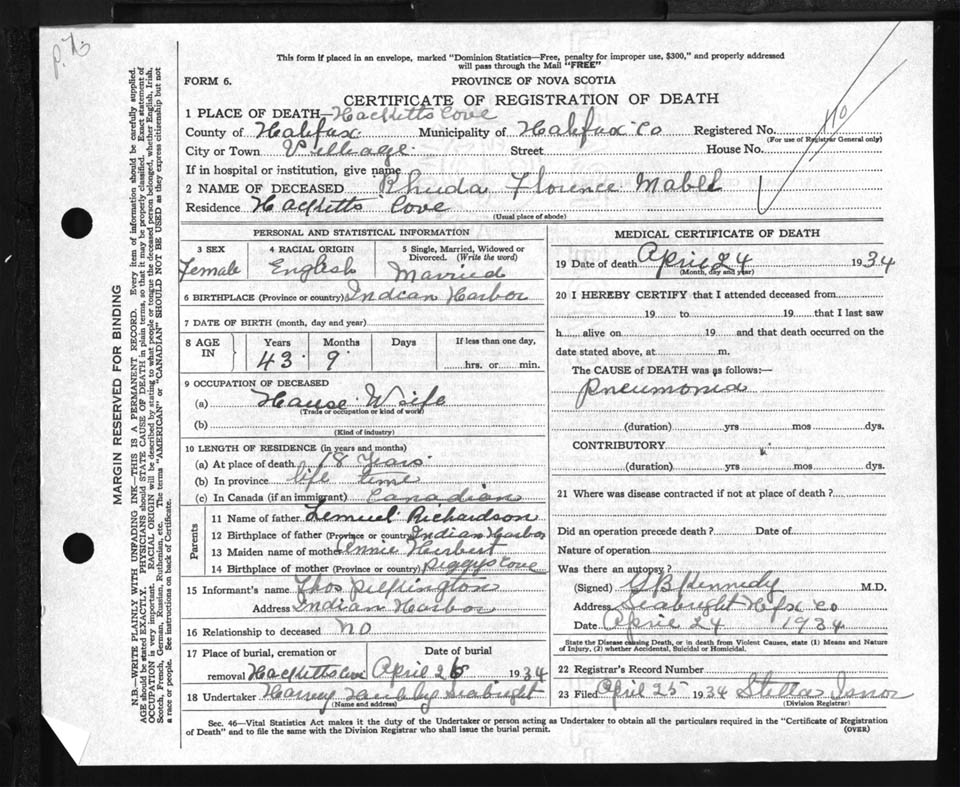 p. 73
This form if placed in an envelope, marked "Dominion Statistics—Free, penalty for improper use, $300," and properly addressed
will pass through the Mail "FREE"
FORM 6.
PROVINCE OF NOVA SCOTIA
CERTIFICATE OF REGISTRATION OF DEATH
1 PLACE OF DEATH—Hacketts Cove
County of Halifax Municipality of Halifax Co Registered No.
(For use of Registrar General only)
City or Town Village Street House No.
If in hospital or institution, give name
2 NAME OF DECEASED Rhuda Florence Mabel
Residence Hacketts Cove
(Usual place of abode)
PERSONAL AND STATISTICAL INFORMATION
3 SEX 4 RACIAL ORIGIN 5 Single, Married, Widowed or
Divorced. (Write the word)
Female English Married
6 BIRTHPLACE (Province or country) Indian Harbor
7 DATE OF BIRTH (month, day and year)
8 AGE IN Years Months Days If less than one day,
43 9 hrs. or min.
9 OCCUPATION OF DECEASED
(a) House Wife
(Trade or occupation or kind of work)
(b)
(Kind of industry)
10 LENGTH OF RESIDENCE (in years and months)
(a) At place of death 18 Years
(b) In province life time
(c) In Canada (if an immigrant) Canadian
Parents
11 Name of father Lemuel Richardson
12 Birthplace of father (Province or country) Indian Harbor
13 Maiden name of mother Annie Herbert
14 Birthplace of mother (Province or country) Peggys Cove
15 Informant's name Thos Pilkington
Address Indian Harbor
16 Relationship to deceased no
17 Place of burial, cremation or Date of burial
removal Hacketts Cove April 26 1934
18 Undertaker Harvey Hubley Seabright
(Name and address)
MEDICAL CERTIFICATE OF DEATH
19 Date of death April 24 1934
(Month, day and year)
20 I HEREBY CERTIFY that I attended deceased from
19 to 19 that I last saw
h alive on 19 and that death occurred on the
date stated above, at m.
The CAUSE OF DEATH was as follows:—
Pneumonia
(duration) yrs mos dys.
CONTRIBUTORY
(duration) yrs mos dys.
21 Where was disease contracted if not at place of death?
Did an operation precede death? Date of
Nature of operation
Was there an autopsy?
(Signed) G B Kennedy M.D.
Address Seabright Hfx Co
Date April 24 1934
State the Disease causing Death, or in death from Violent Causes, state (1) Means and Nature
of Injury, (2) whether Accidental, Suicidal or Homicidal.
22 Registrar's Record Number
23 Filed April 25 1934 Stella Isnor
(Division Registrar)
Sec. 46—Vital Statistics Act makes it the duty of the Undertaker or person acting as Undertaker to obtain all the particulars required in the "Certificate of Registration
of Death" and to file the same with the Division Registrar who shall issue the burial permit. (OVER)
MARGIN RESERVED FOR BINDING
N.B.—WRITE PLAINLY WITH UNFADING INK—THIS IS A PERMANENT RECORD. Every item of information should be carefully supplied.
AGE should be stated EXACTLY. PHYSICIANS should STATE CAUSE OF DEATH in plain terms, so that it may be properly classified. Exact statement of
OCCUPATION is very important. RACIAL ORIGIN will be described by stating to what people or tongue the deceased person belonged, whether English, Irish,
Scotch, French, German, Russian, Ruthenian, etc. The terms "AMERICAN" or "CANADIAN" SHOULD NOT BE USED as they express citizenship but not
a race or people. See instructions on back of Certificate.